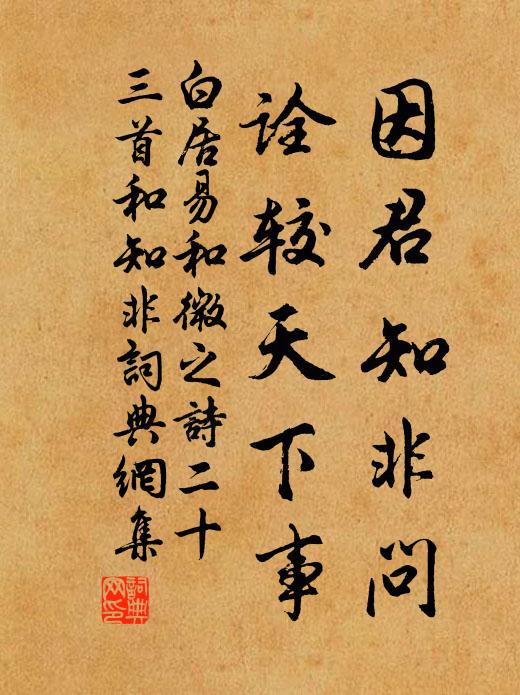 因君知非问
诠较天下事
白居易和微之詩二十
三首和知非詞典網集
詞典网印